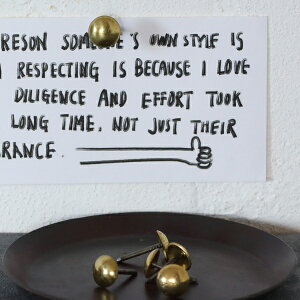 RESON SOME 'S OWN STYLE IS
I RESPECTING IS BECAUSE I LOVE
DILIGENCE AND EFFORT TOOK
LONG TIME. NOT JUST THEIR
RANCE.